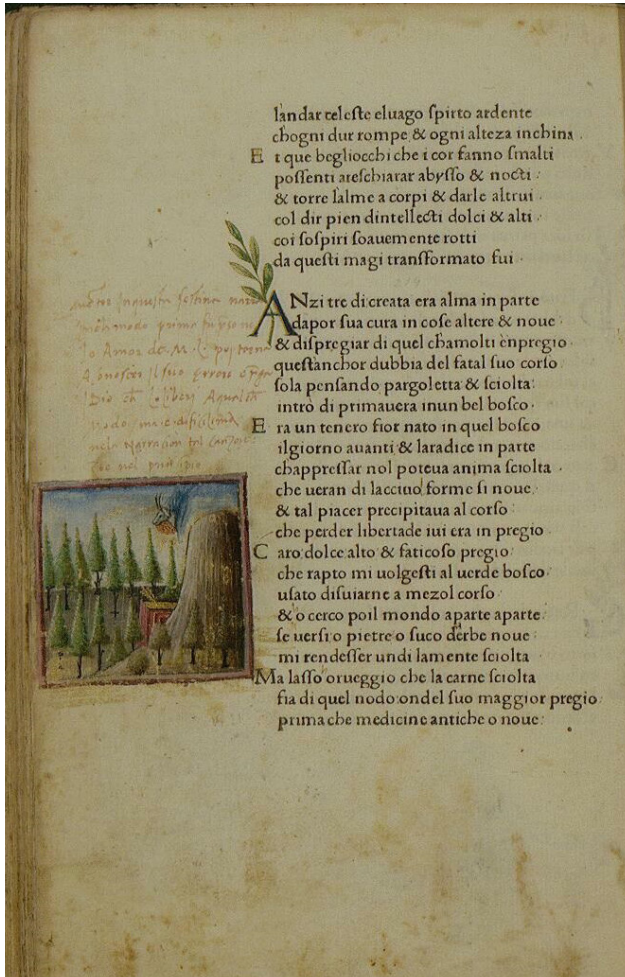 landar celeste eluago spirto ardente
chogni dur rompe & ogni alteza inchina .
E t que begliocchi che i cor fanno smalti
possenti areschiarar abysso & nocti
& torre lalme a corpi & darle altrui
col dir pien dintellecti dolci & alti
coi sospiri soauemente rotti
da questi magi transformato fui
ANzi tre di creata era alma in parte
dapor sua cura in cose altere & noue
& dispregiar di quel chamolti enpregio
questanchor dubbia del fatal suo corso
sola pensando pargoletta & sciolta
intrò di primauera inun bel bosco
E ra un tenero fior nato in quel bosco
ilgiorno auanti & laradice in parte
chappressar nol poteua anima sciolta
che ueran di lacciuo forme si noue
& tal piacer precipitaua al corso
che perder libertade iui era in pregio
C aro dolce alto & faticoso pregio
che rapto mi uolgesti al uerde bosco
usato disuiarne a mezol corso
& o cerco poil mondo aparte aparte
se uersi o pietre o suco derbe noue
mi rendesser undi lamente sciolta
Ma lasso orueggio che la carne sciolta
fia di quel nodo ondel suo maggior pregio
prima che medicine antiche o noue